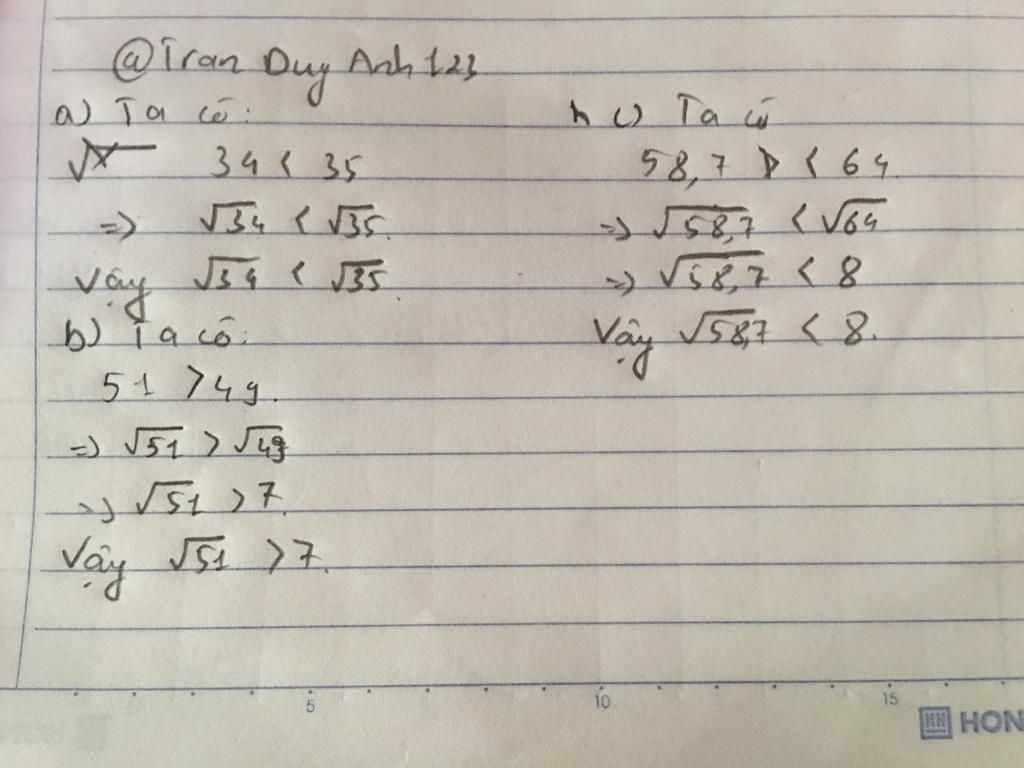 @Tran Duy Anh 123
a) Ta có:
34 < 35
=> √34 < √35.
Vậy √34 < √35.
b) Ta có:
51 > 49.
=> √51 > √49
=> √51 > 7.
Vậy √51 > 7.
c) Ta có
58,7 < 64.
=> √58,7 < √64
=> √58,7 < 8
Vậy √58,7 < 8.
5 10 15
HON